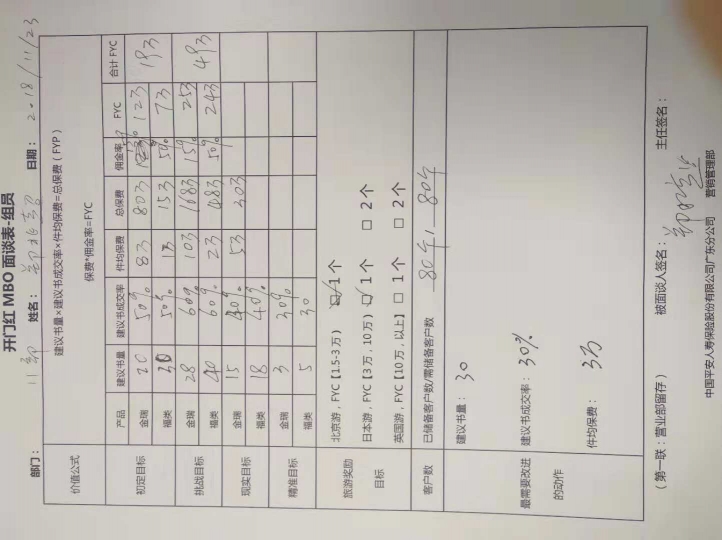 开门红 MBO 面谈表-组员
部门： 姓名： 日期： 2018/11/23
价值公式 建议书量×建议书成交率×件均保费=总保费（FYP）
保费*佣金率=FYC
产品 建议书量 建议书成交率 件均保费 总保费 佣金率 FYC 合计 FYC
初定目标 金瑞 20 50% 8万 80万 15% 12万 19万
福类 30 50% 1万 15万 50% 7万
挑战目标 金瑞 28 60% 10万 168万 15% 25万 49万
福类 40 60% 2万 48万 50% 24万
现实目标 金瑞 15 40% 5万 30万
福类 18 40%
精准目标 金瑞 3 30%
福类 5 30
旅游奖励目标 北京游，FYC【1.5-3万） ☑ 1个
日本游，FYC【3万，10万） ☑ 1个 □ 2个
英国游，FYC【10万，以上】 □ 1个 □ 2个
客户数 已储备客户数/需储备客户数
最需要改进的动作 建议书量： 30
建议书成交率： 30%
件均保费： 3万
（第一联：营业部留存） 被面谈人签名： 主任签名：
中国平安人寿保险股份有限公司广东分公司 营销管理部